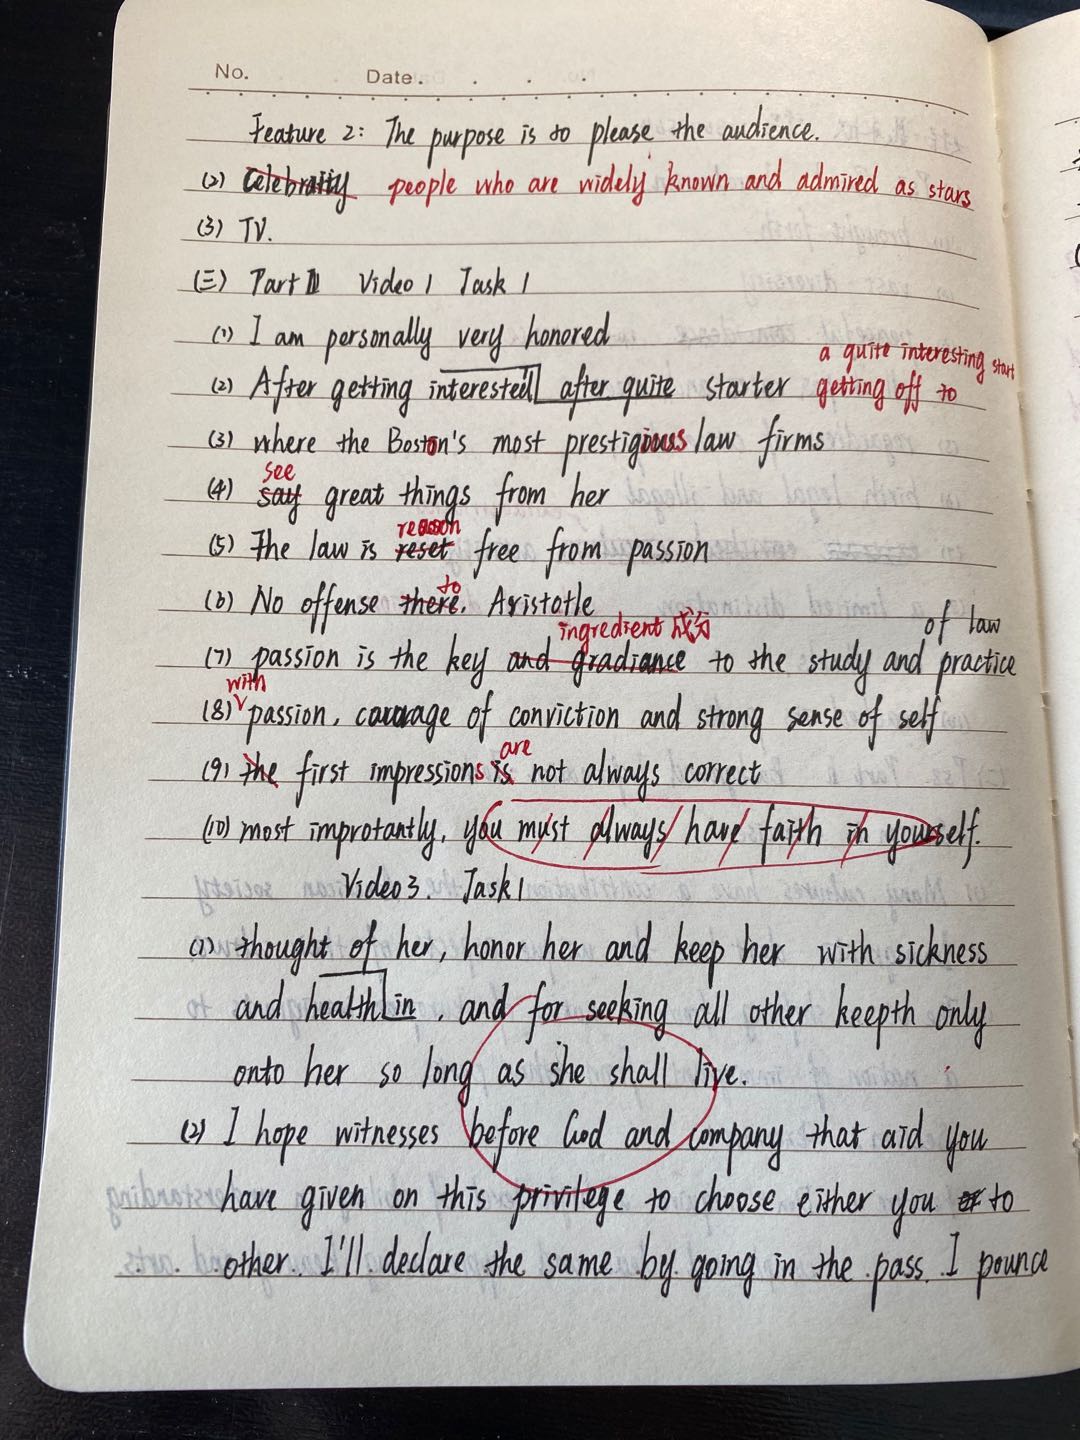 No. Date.
Feature 2: The purpose is to please the audience.
(2) Celebraity people who are widely known and admired as stars
(3) TV.
(三) Part II Video 1 Task 1
(1) I am personally very honored
a quite interesting start
(2) After getting interested after quite starter getting off to
(3) where the Boston's most prestigious law firms
see
(4) say great things from her
reason
(5) The law is reset free from passion
to
(6) No offense there. Aristotle
ingredient 成分 of law
(7) passion is the key and gradiance to the study and practice
with
(8) passion, courage of conviction and strong sense of self
are
(9) the first impressions is not always correct
(10) most improtantly, you must always have faith in yourself.
Video 3. Task 1
(1) thought of her, honor her and keep her with sickness
and health in, and for seeking all other keepth only
onto her so long as she shall live.
(2) I hope witnesses before God and company that aid you
have given on this privilege to choose either you or to
other. I'll declare the same by going in the pass. I pounce